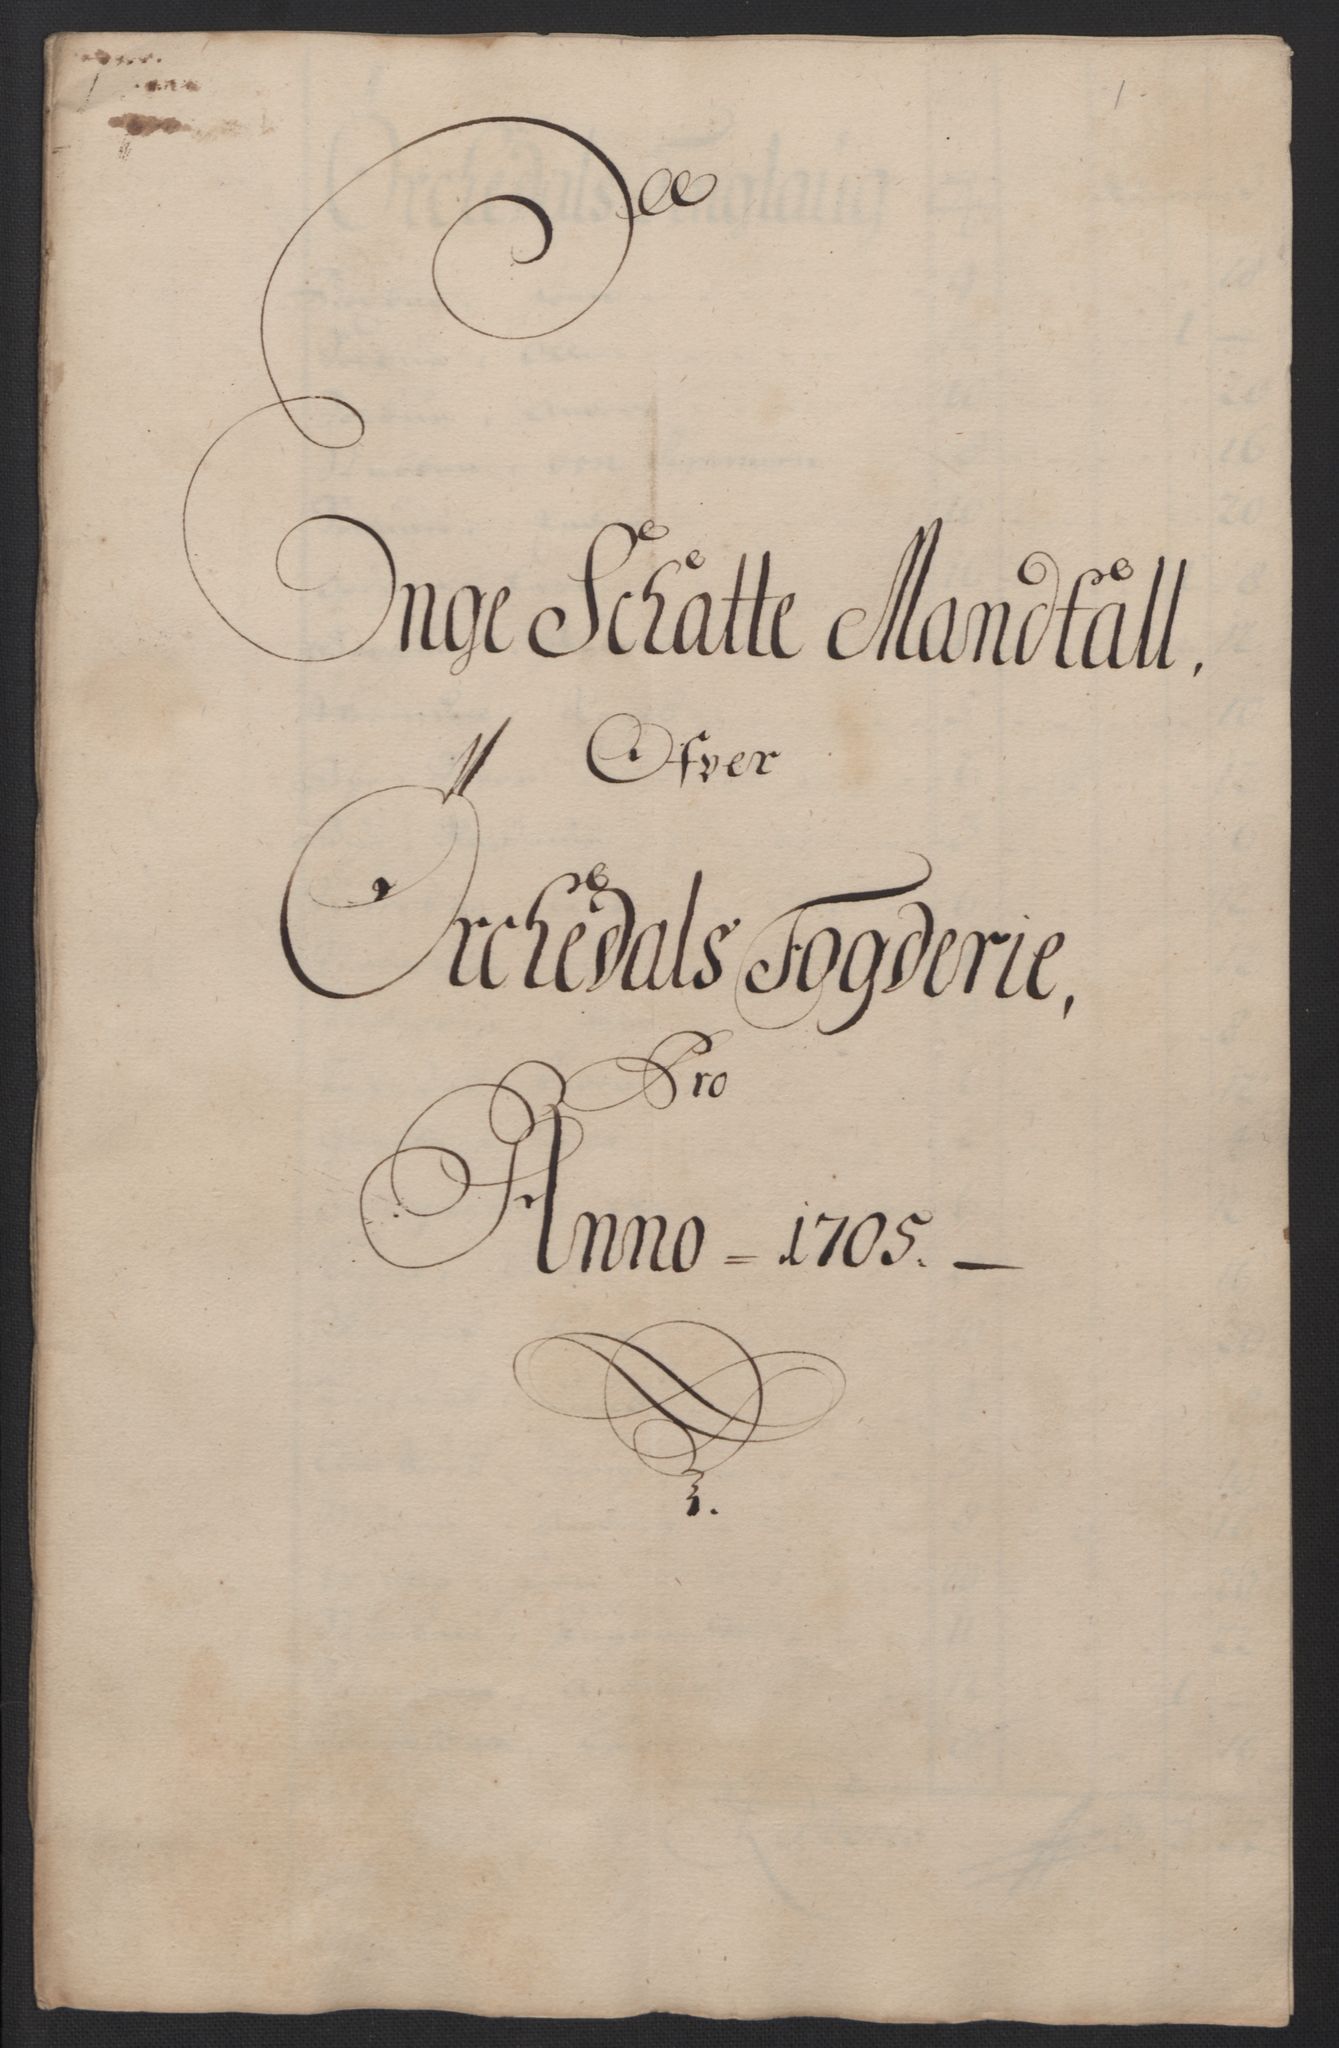 1.
Enge Schatte Mandtall,
Ofver
Orchedals Fogderie,
Pro
Anno = 1705. —